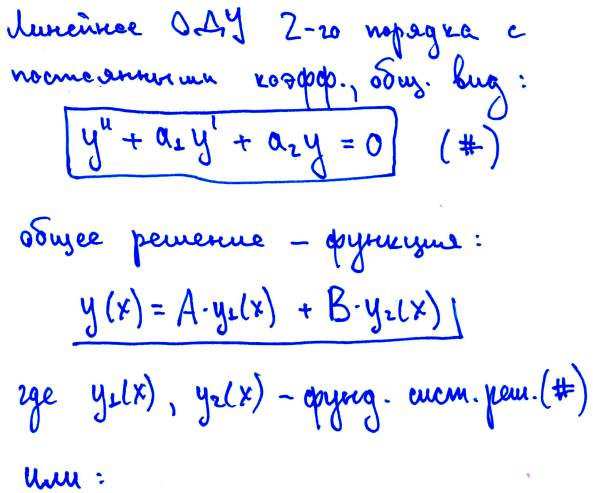 Линейное ОДУ 2-го порядка с
постоянными коэфф., общ. вид:
y'' + a₁y' + a₂y = 0 (#)
общее решение – функция:
y(x) = A·y₁(x) + B·y₂(x)
где y₁(x), y₂(x) – фунд. сист. реш. (#)
или: